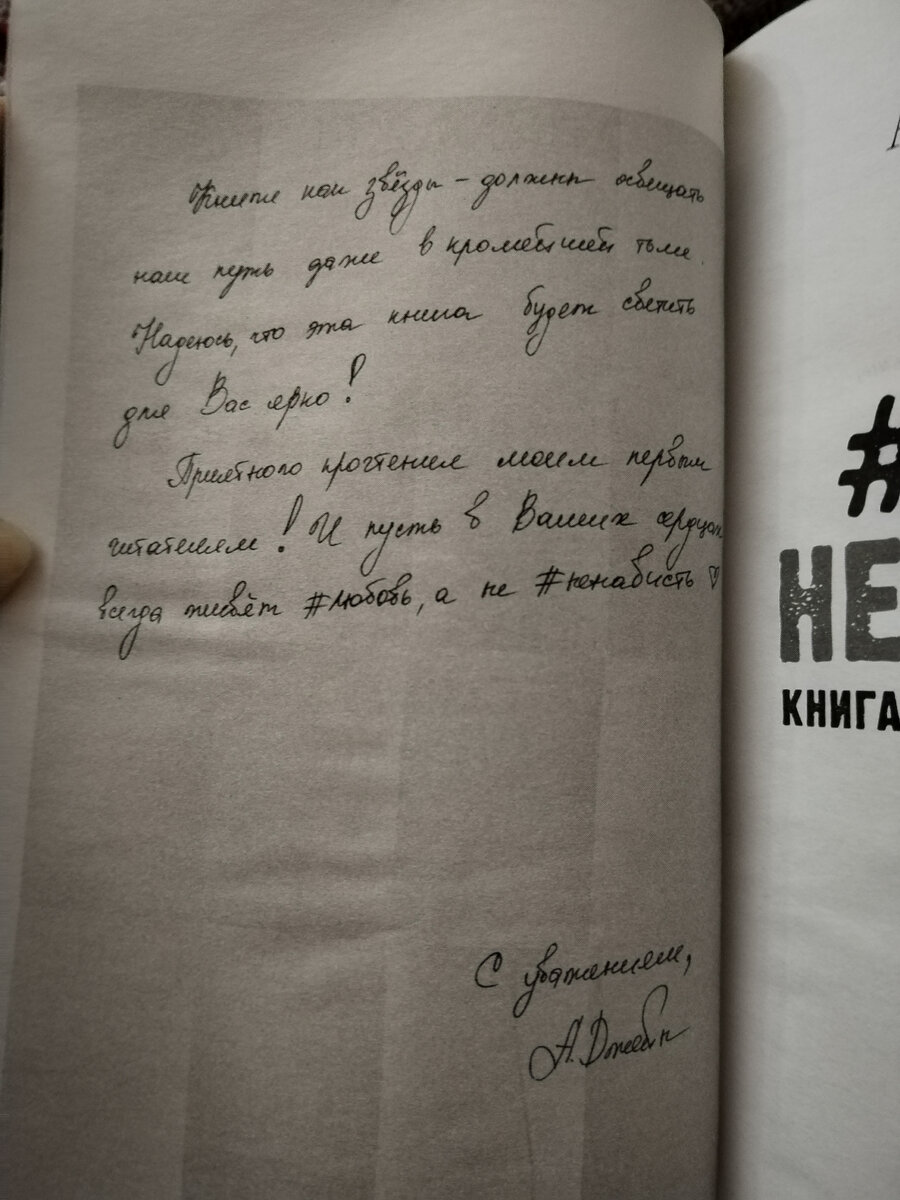 Книги как звёзды – должны освещать
наш путь даже в кромешной тьме.
Надеюсь, что эта книга будет светить
для Вас ярко!
Приятного прочтения моим первым
читателям! И пусть в Ваших сердцах
всегда живёт #любовь, а не #ненависть ♡
С уважением,
А. Джейн
#
НЕ
КНИГА